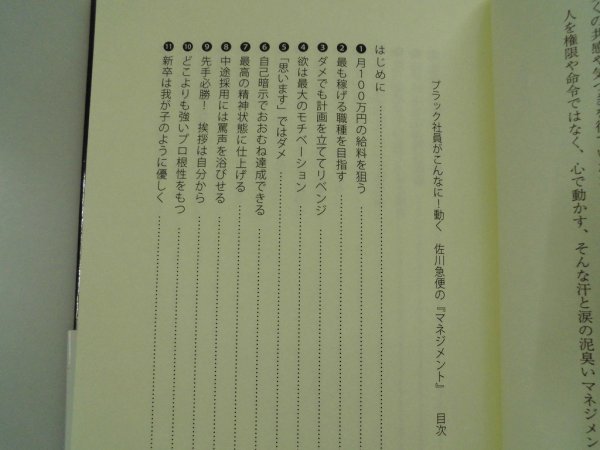 くの共感や気づきを得
人を権限や命令ではなく、心で動かす、そんな汗と涙の泥臭いマネジメン
ブラック社員がこんなに！動く　佐川急便の『マネジメント』　目次
はじめに
❶ 月100万円の給料を狙う
❷ 最も稼げる職種を目指す
❸ ダメでも計画を立ててリベンジ
❹ 欲は最大のモチベーション
❺ 「思います」ではダメ
❻ 自己暗示でおおむね達成できる
❼ 最高の精神状態に仕上げる
❽ 中途採用には罵声を浴びせる
❾ 先手必勝！　挨拶は自分から
❿ どこよりも強いプロ根性をもつ
⓫ 新卒は我が子のように優しく